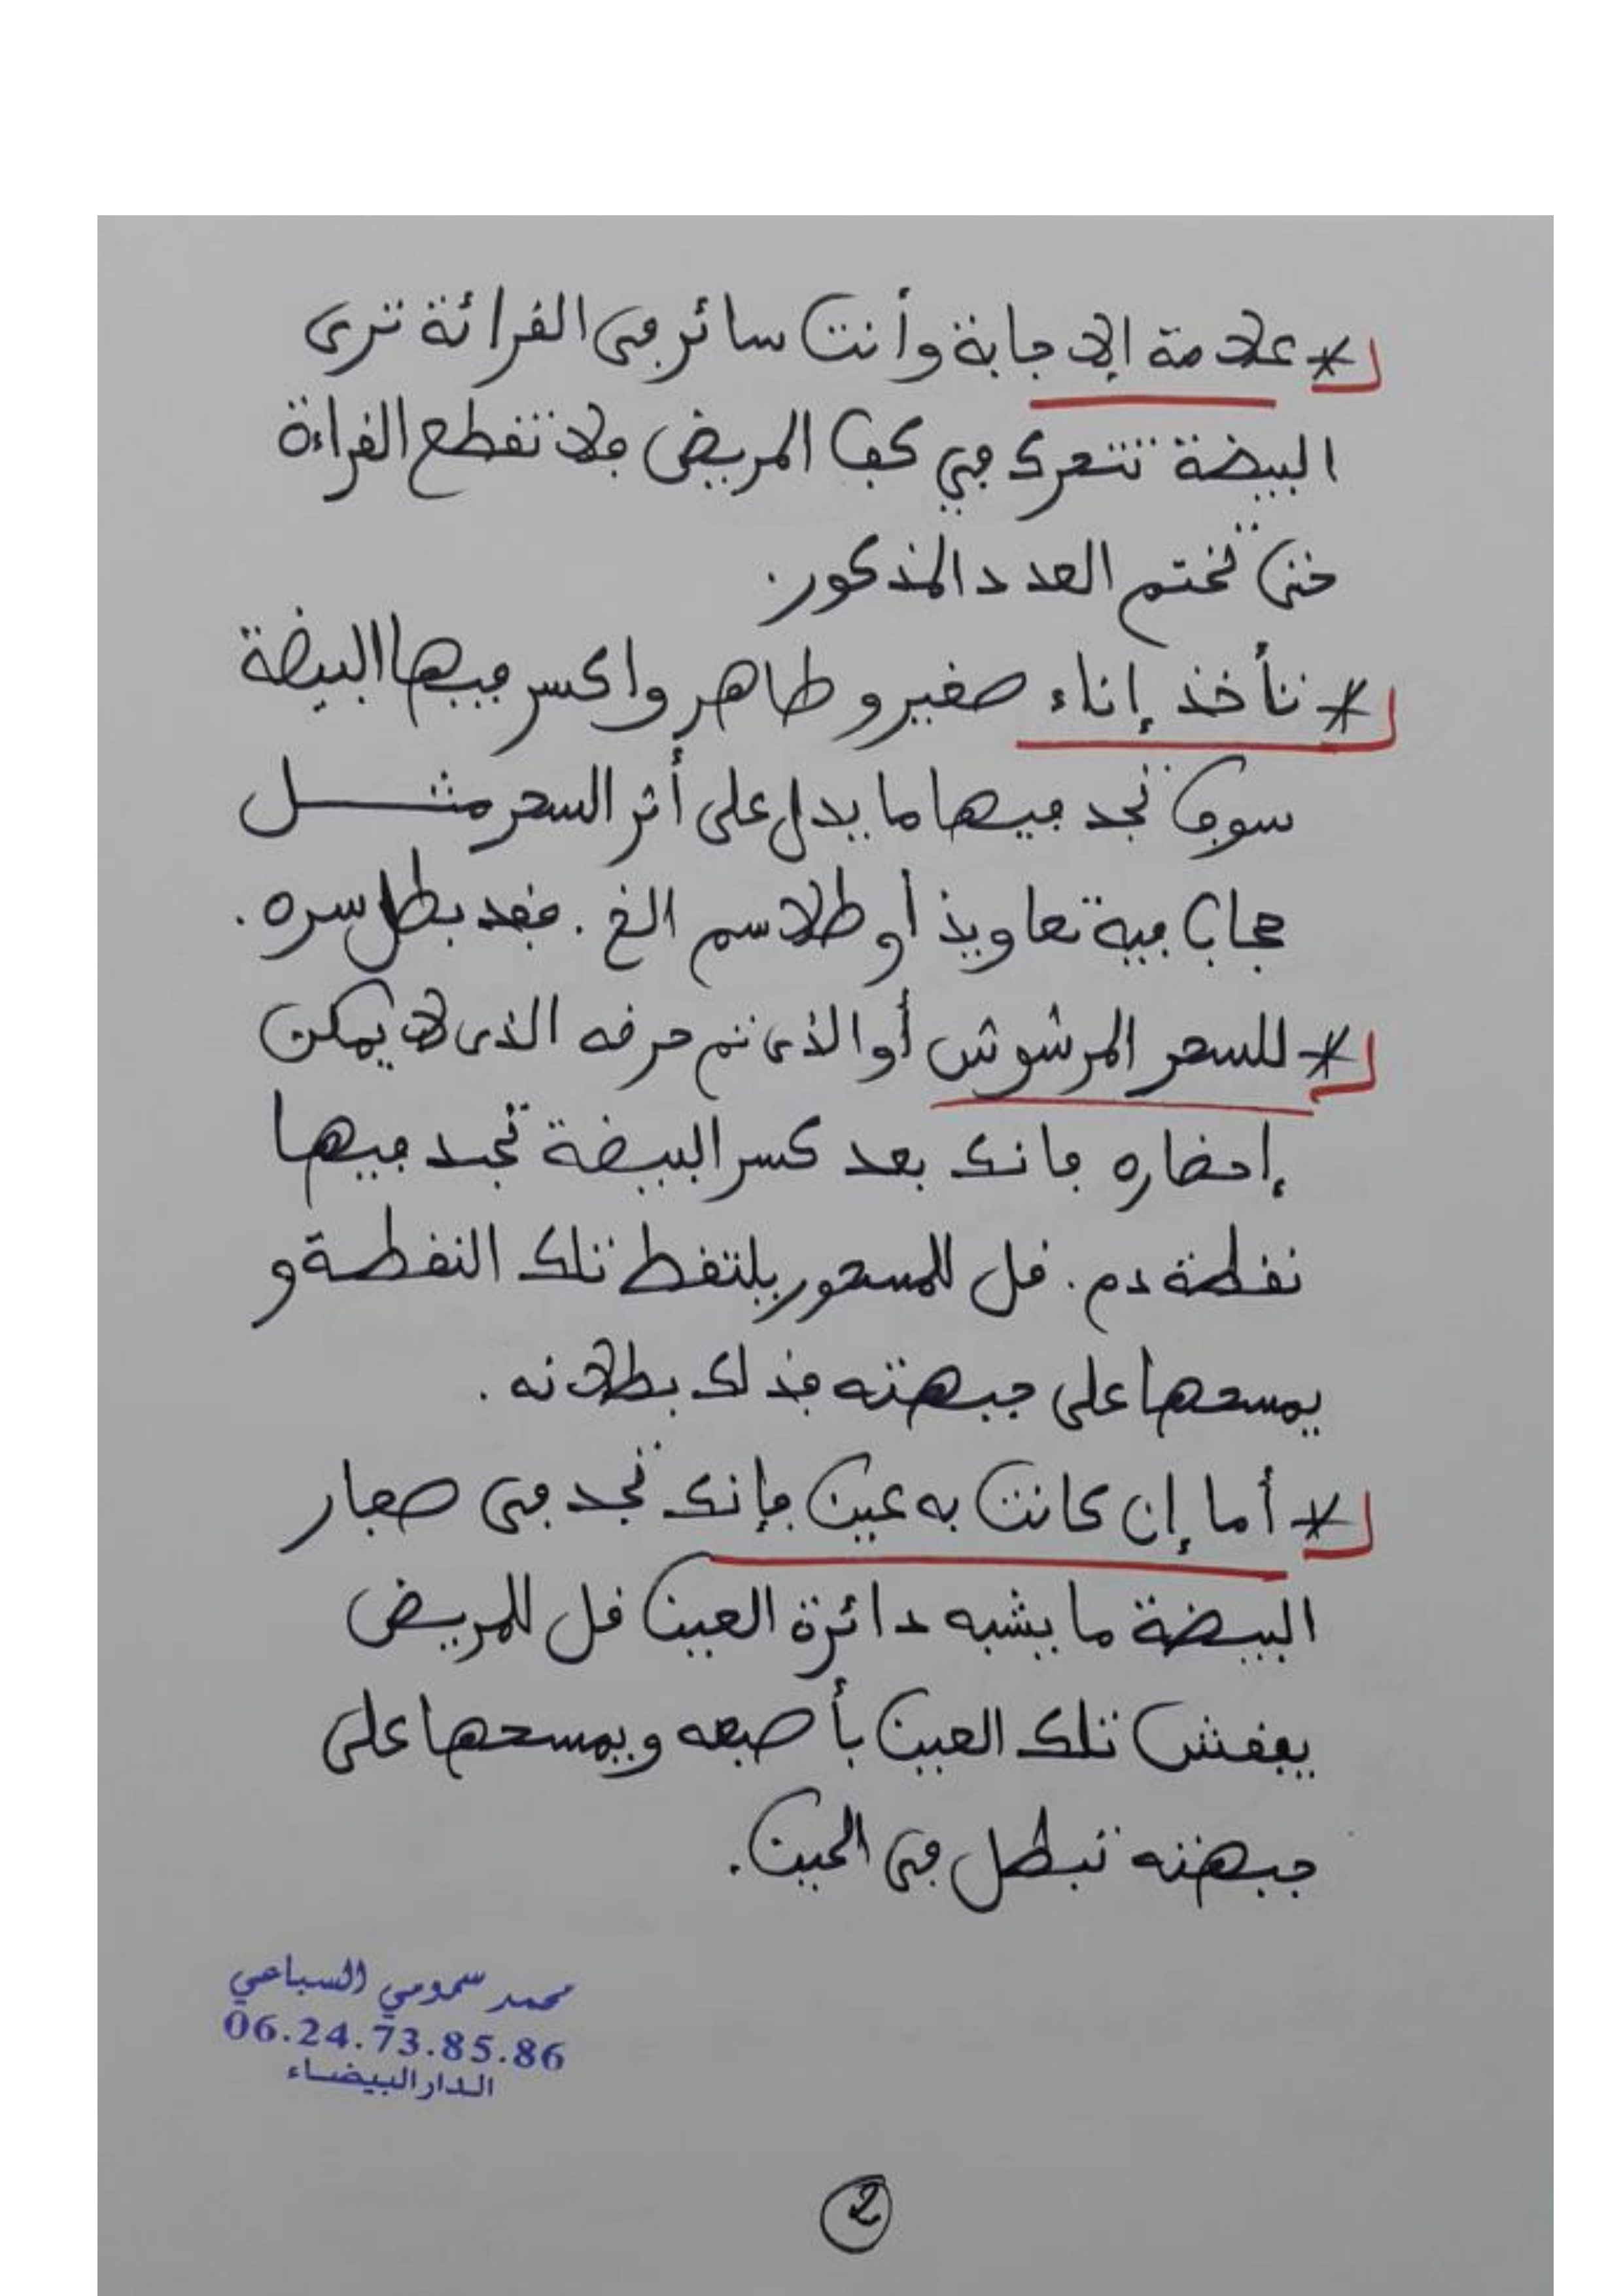 * علامة الإجابة وأنت سائر في القرائة ترى
البيضة تتحرك في كف المريض فلا تقطع القراءة
حتى تختم العدد المذكور.
* تأخذ إناء صغير و طاهر واكسر فيها البيضة
سوف تجد فيها ما يدل على أثر السحر مثل
حجاب فيه تعاويذ أو طلاسم الخ. فقد بطل سره.
* للسحر المرشوش أو الذي تم حرقه الذي لا يمكن
إحضاره فانك بعد كسر البيضة تجد فيها
نقطة دم. قل للمسحور يلتقط تلك النقطة و
يمسحها على جبهته فذلك بطلانه.
* أما إن كانت به عين فإنك تجد في صفار
البيضة ما يشبه دائرة العين قل للمريض
يفقش تلك العين بأصبعه ويمسحها على
جبهته تبطل في الحين.
محمد سمومي السباعي
06.24.73.85.86
الدار البيضاء
2